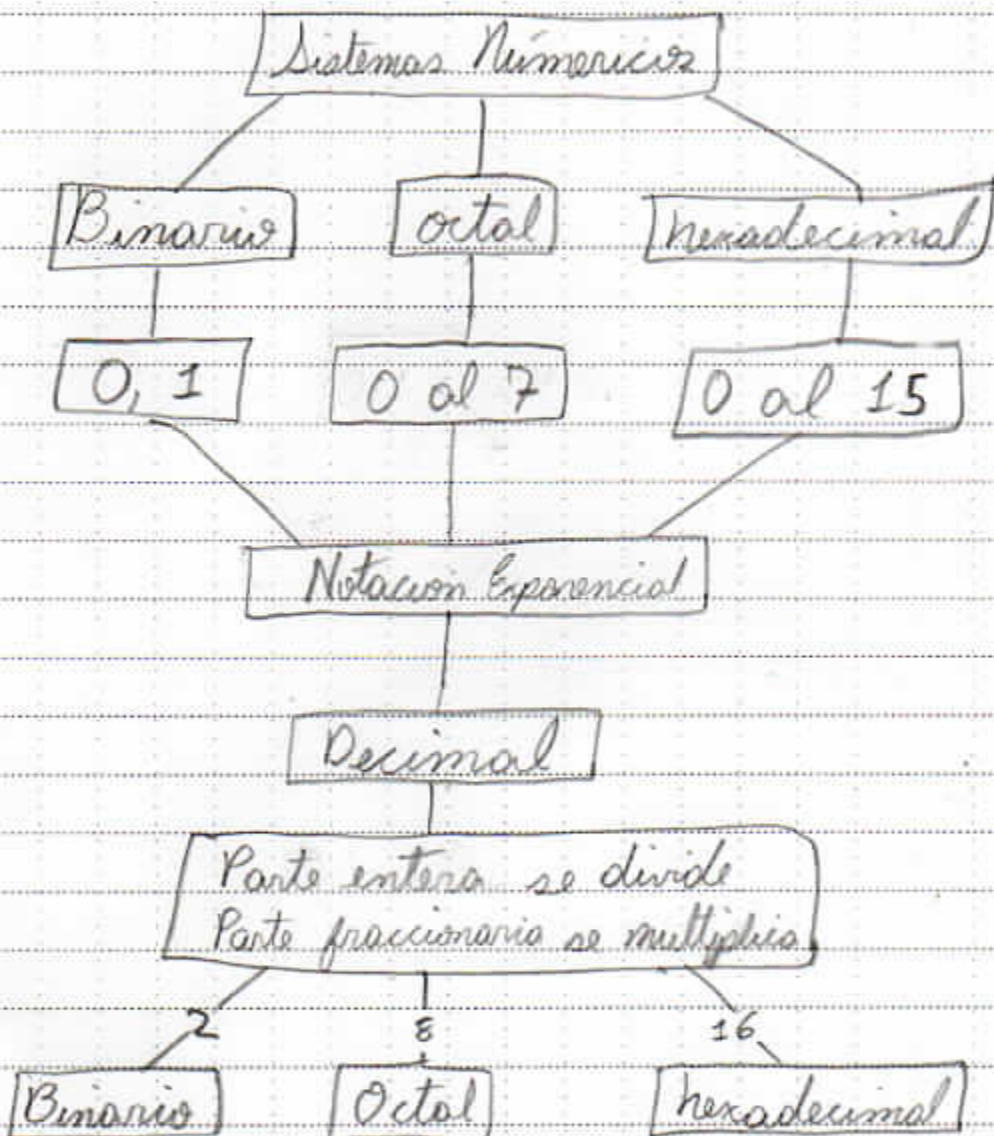 Sistemas Númericos
Binario octal hexadecimal
0, 1 0 al 7 0 al 15
Notacion Exponencial
Decimal
Parte entera se divide
Parte fraccionaria se multiplica
2 8 16
Binario Octal hexadecimal